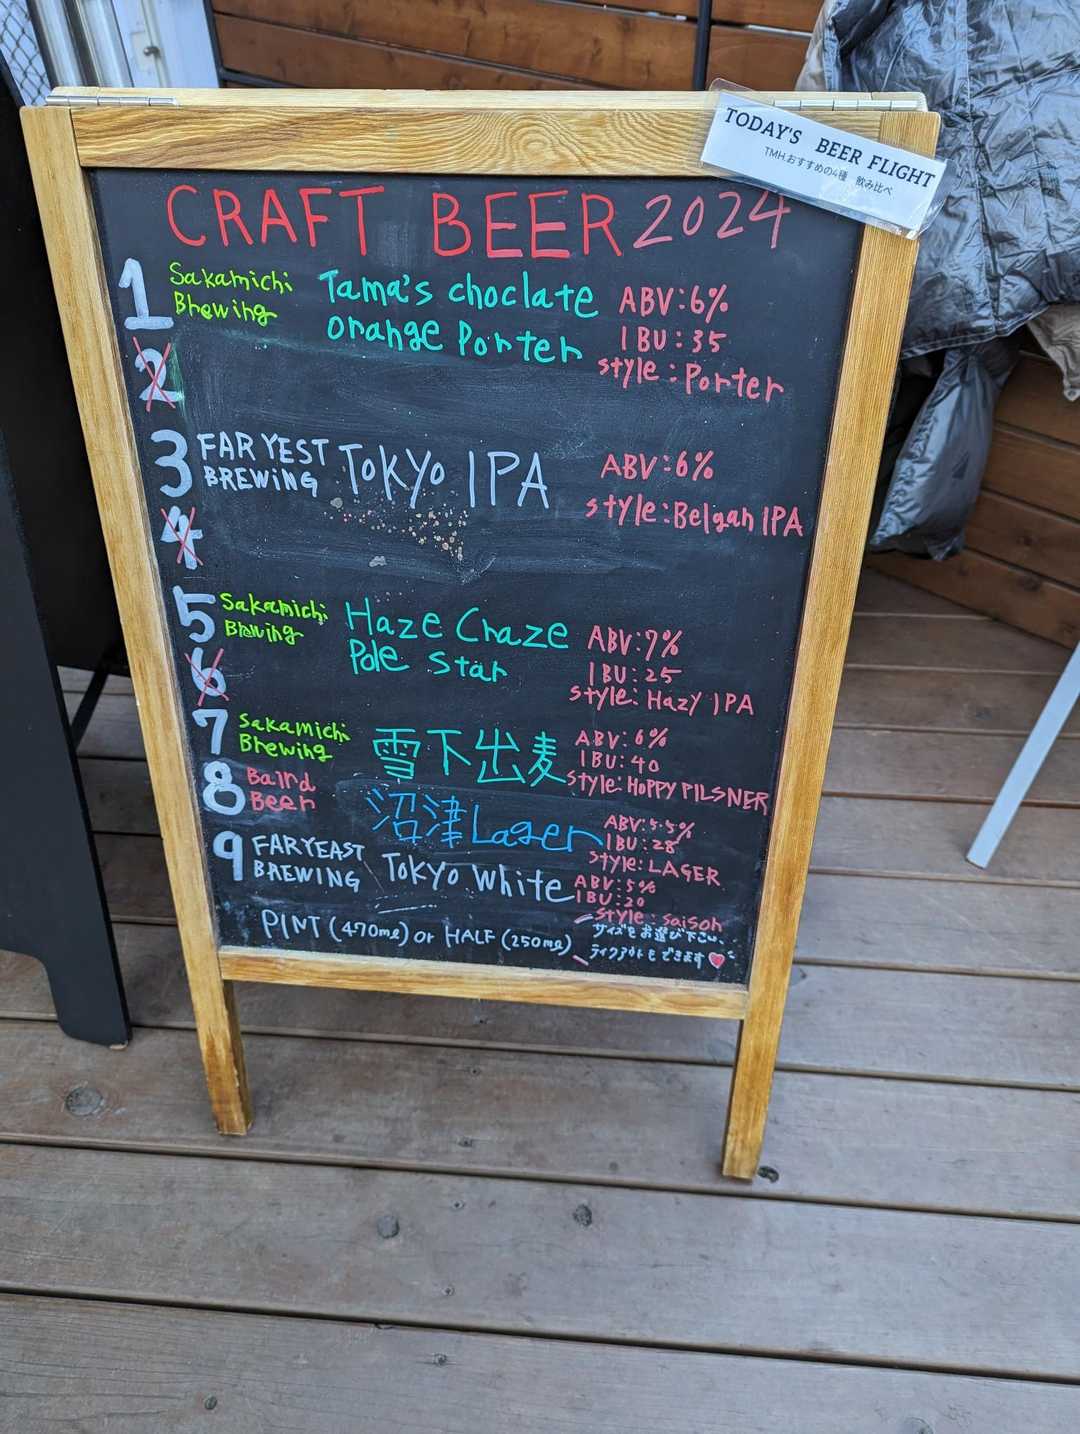 TODAY'S BEER FLIGHT
TMH.おすすめの4種 飲み比べ
CRAFT BEER 2024
1 Sakamichi Brewing Tama's choclate orange Porter
ABV:6%
IBU:35
style:Porter
2
3 FAR YEST BREWING TOKYO IPA
ABV:6%
style:Belgan IPA
4
5 Sakamichi Brewing Haze Craze Pole Star
ABV:7%
IBU:25
style:Hazy IPA
6
7 Sakamichi Brewing 雪下出麦
ABV:6%
IBU:40
style:HOPPY PILSNER
8 Baird Beer 沼津Lager
ABV:5.5%
IBU:28
style:LAGER
9 FAR YEAST BREWING TOKYO White
ABV:5%
IBU:20
style:saison
PINT (470ml) or HALF (250ml)
サイズをお選び下さい、
テイクアウトもできます